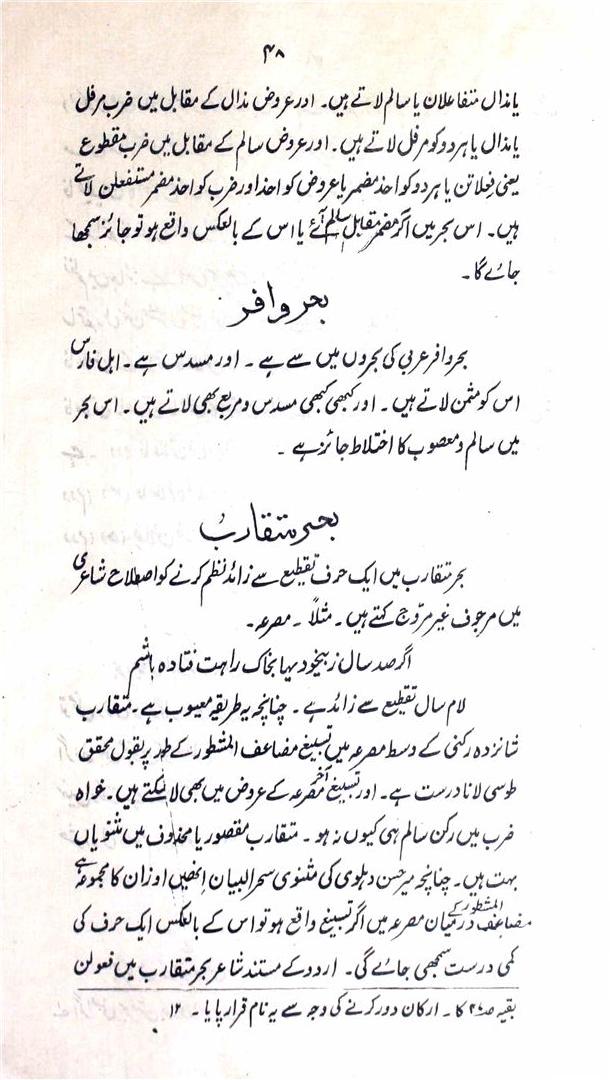 ۴۸
یا مذال متفاعلان یا سالم لاتے ہیں۔ اور عروض مذال کے مقابل میں ضرب مرفل
یا مذال یا ہر دو کو مرفل لاتے ہیں۔ اور عروض سالم کے مقابل میں ضرب مقطوع
یعنی فعلاتن یا ہر دو کو احذ مضمر یا عروض کو احذ اور ضرب کو احذ مضمر مستفعلن لاتے
ہیں۔ اس بحر میں اگر مضمر مقابل سالم آئے یا اس کے بالعکس واقع ہو تو جائز سمجھا
جائے گا۔
بحر وافر
بحر وافر عربی کی بحروں میں سے ہے۔ اور مسدس ہے۔ اہل فارس
اس کو مثمن لاتے ہیں۔ اور کبھی کبھی مسدس و مربع بھی لاتے ہیں۔ اس بحر
میں سالم و معصوب کا اختلاط جائز ہے۔
بحر متقارب
بحر متقارب میں ایک حرف تقطیع سے زائد نظم کرنے کو اصطلاح شاعری
میں مرجوف غیر مروّج کہتے ہیں۔ مثلاً۔ مصرعہ۔
اگر صد سال زبیخود یہا بخاک راہت فتادہ باشم
لام سال تقطیع سے زائد ہے۔ چنانچہ یہ طریقہ معیوب ہے۔ متقارب
شانزدہ رکنی کے وسط مصرعہ میں تسبیغ مضاعف المشطور کے طور پر بقول محقق
طوسی لانا درست ہے۔ اور تسبیغ آخر مصرعہ کے عروض میں بھی لا سکتے ہیں۔ خواہ
ضرب میں رکن سالم ہی کیوں نہ ہو۔ متقارب مقصور یا محذوف میں مثنویاں
بہت ہیں۔ چنانچہ میر حسن دہلوی کی مثنوی سحر البیان انھیں اوزان کا مجموعہ ہے
مضاعف المشطور کے درمیان مصرعہ میں اگر تسبیغ واقع ہو تو اس کے بالعکس ایک حرف کی
کمی درست سمجھی جائے گی۔ اردو کے مستند شاعر بحر متقارب میں فعولن
بقیہ صہ ۴۷ کا۔ ارکان دور کرنے کی وجہ سے یہ نام قرار پایا۔ ۱۲